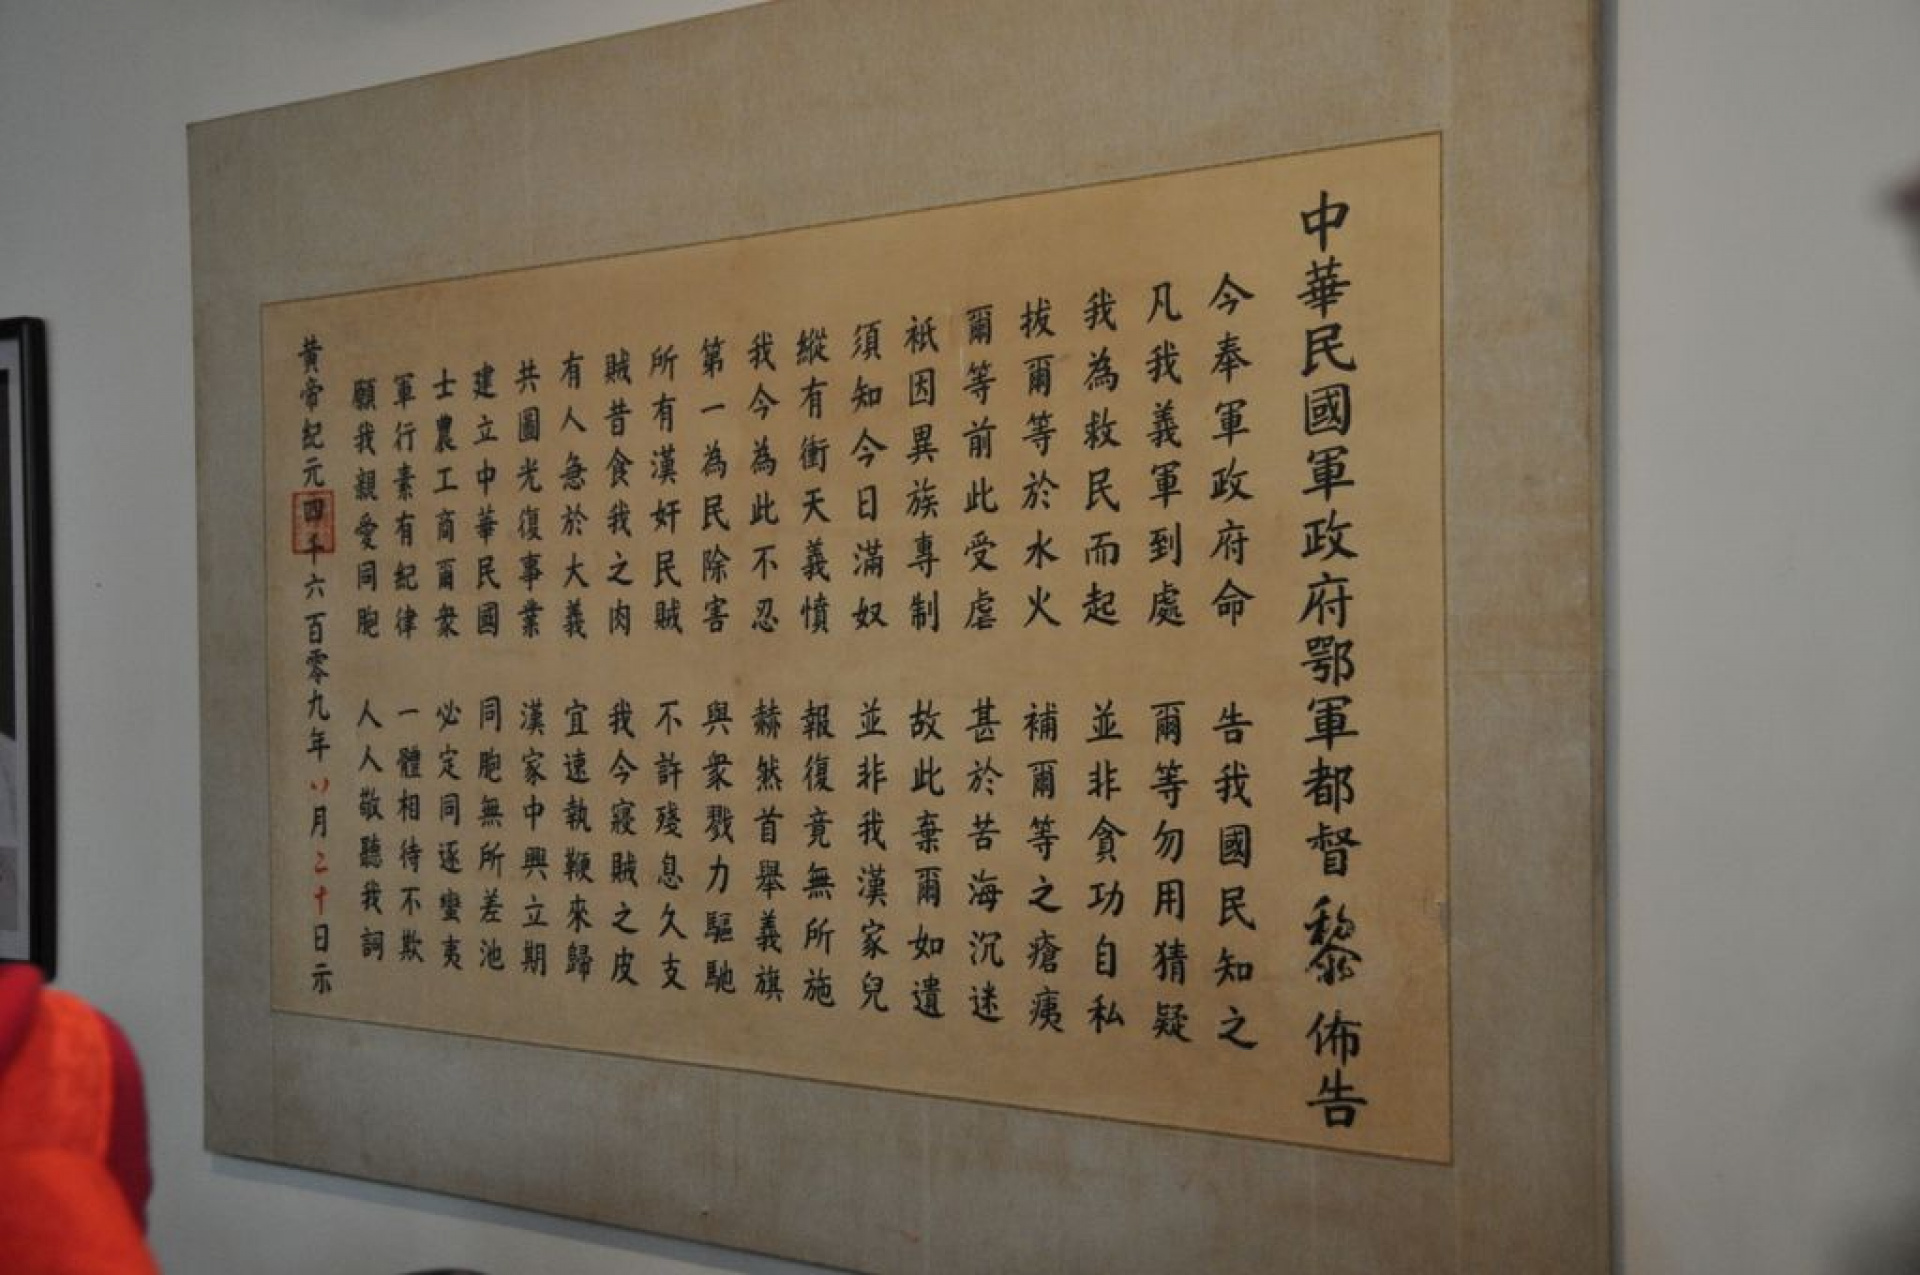 中華民國軍政府鄂軍都督黎佈告
今奉軍政府命 告我國民知之
凡我義軍到處 爾等勿用猜疑
我為救民而起 並非貪功自私
拔爾等於水火 補爾等之瘡痍
爾等前此受虐 甚於苦海沉迷
祇因異族專制 故此棄爾如遺
須知今日滿奴 並非我漢家兒
縱有衝天義憤 報復竟無所施
我今為此不忍 赫然首舉義旗
第一為民除害 與衆戮力驅馳
所有漢奸民賊 不許殘息久支
賊昔食我之肉 我今寢賊之皮
有人急於大義 宜速執鞭來歸
共圖光復事業 漢家中興立期
建立中華民國 同胞無所差池
士農工商爾衆 必定同逐蠻夷
軍行素有紀律 一體相待不欺
願我親愛同胞 人人敬聽我詞
黃帝紀元四千六百零九年八月二十日示